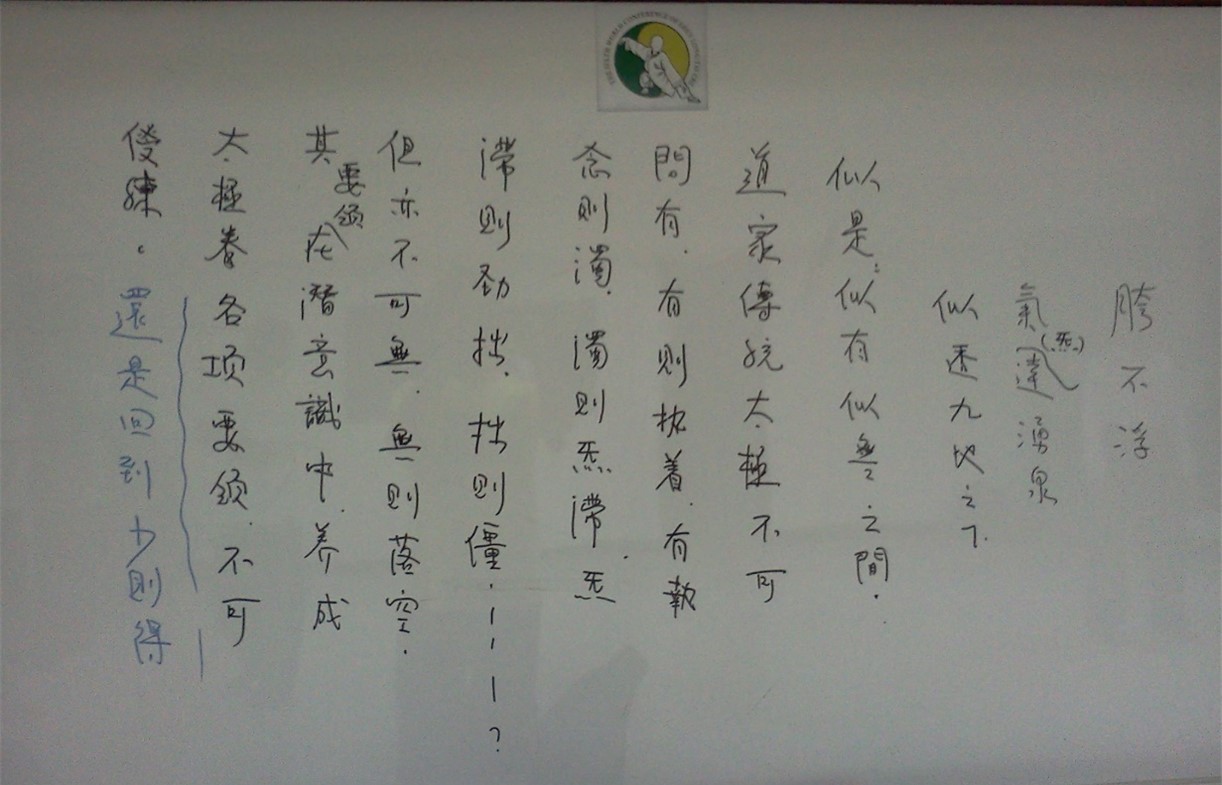 胯不浮
氣(炁)達湧泉
似透九地之下.
似是:似有似無之間.
道家傳統太極不可
問有.有則执着.有執
念則濁.濁則炁滯.炁
滯則劲拙.拙則僵.———?
但亦不可無.無則落空.
其要領在潛意識中.养成
太極拳各項要領.不可
儍練.還是回到少則得